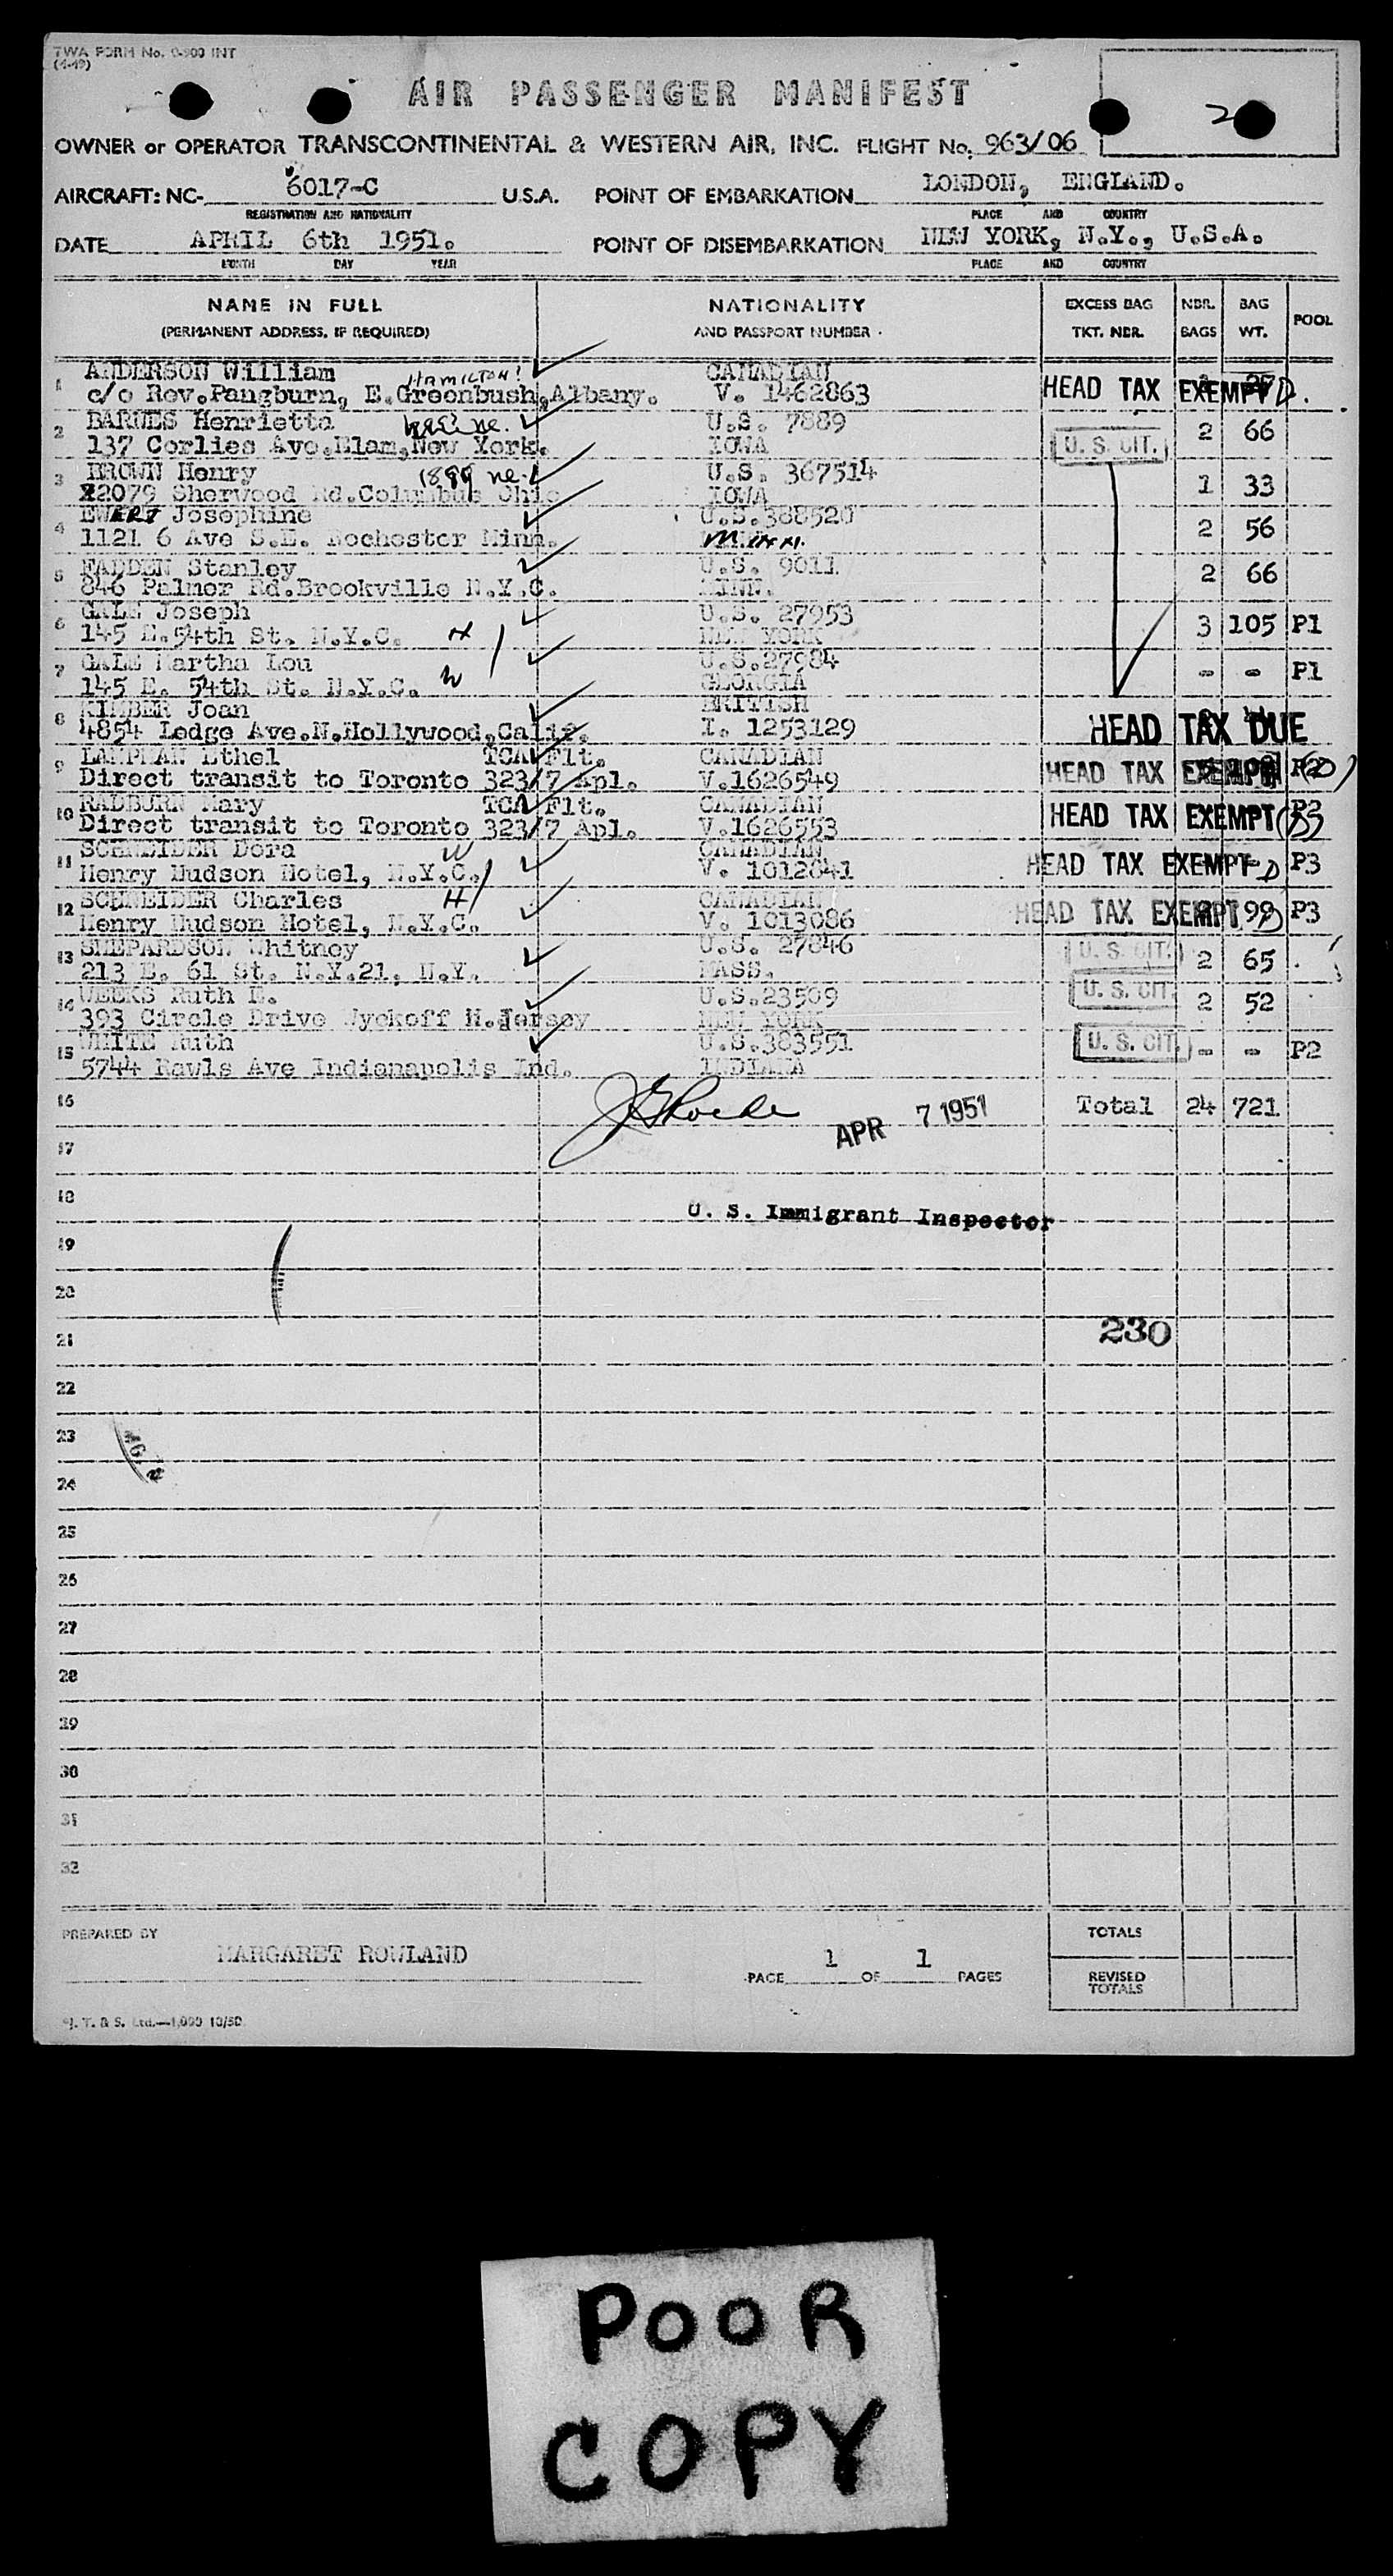 TWA FORM No. 0-900 INT
(4-49)
AIR PASSENGER MANIFEST
2
OWNER or OPERATOR TRANSCONTINENTAL & WESTERN AIR, INC. FLIGHT No. 963/06
AIRCRAFT: NC- 6017-C U.S.A. POINT OF EMBARKATION LONDON, ENGLAND.
REGISTRATION AND NATIONALITY PLACE AND COUNTRY
DATE APRIL 6th 1951. POINT OF DISEMBARKATION NEW YORK, N.Y., U.S.A.
MONTH DAY YEAR PLACE AND COUNTRY
NAME IN FULL NATIONALITY EXCESS BAG NBR. BAG POOL
(PERMANENT ADDRESS, IF REQUIRED) AND PASSPORT NUMBER TKT. NBR. BAGS WT.
1 ANDERSON William HAMILTON CANADIAN
c/o Rev.Pangburn, E.Greenbush,Albany. V. 1462863 HEAD TAX EXEMPT D.
2 BARNES Henrietta U.S. 7889
137 Corlies Ave. New York. IOWA U.S. CIT. 2 66
3 BROWN Henry 1899 ne. U.S. 367514
22079 Sherwood Rd.Columbus Ohio IOWA 1 33
4 EWERT Josephine U.S.388520
1121 6 Ave S.E. Rochester Minn. Minn. 2 56
5 FADDEN Stanley U.S. 9011
846 Palmer Rd.Brookville N.Y.C. MINN. 2 66
6 GALE Joseph U.S. 27953
145 E.54th St. N.Y.C. H NEW YORK 3 105 P1
7 GALE Martha Lou U.S.27984
145 E. 54th St. N.Y.C. W GEORGIA - - P1
8 KIMBER Joan BRITISH
4854 Ledge Ave.N.Hollywood,Calif. I. 1253129 HEAD TAX DUE
9 LANPHAN Ethel TCA Flt. CANADIAN
Direct transit to Toronto 323/7 Apl. V.1626549 HEAD TAX EXEMPT (D)
10 RADBURN Mary TCA Flt. CANADIAN
Direct transit to Toronto 323/7 Apl. V.1626553 HEAD TAX EXEMPT
11 SCHNEIDER Dora W CANADIAN
Henry Hudson Hotel, N.Y.C. V. 1012841 HEAD TAX EXEMPT D P3
12 SCHNEIDER Charles H CANADIAN
Henry Hudson Hotel, N.Y.C. V. 1013086 HEAD TAX EXEMPT 99 P3
13 SHEPARDSON Whitney U.S. 27846
213 E. 61 St. N.Y.21, N.Y. MASS. U.S. CIT. 2 65
14 WEEKS Ruth E. U.S.23509
393 Circle Drive Wyckoff N.Jersey NEW YORK U.S. CIT. 2 52
15 WHITE Ruth U.S.383551
5744 Rawls Ave Indianapolis Ind. INDIANA U.S. CIT. - - P2
16 Total 24 721
APR 7 1951
17
18 U. S. Immigrant Inspector
19
20
21 230
22
23
24
25
26
27
28
29
30
31
32
PREPARED BY MARGARET ROWLAND
PAGE 1 OF 1 PAGES
TOTALS
REVISED
TOTALS
J. T. & S. Ltd.—1,000 10/50
POOR
COPY